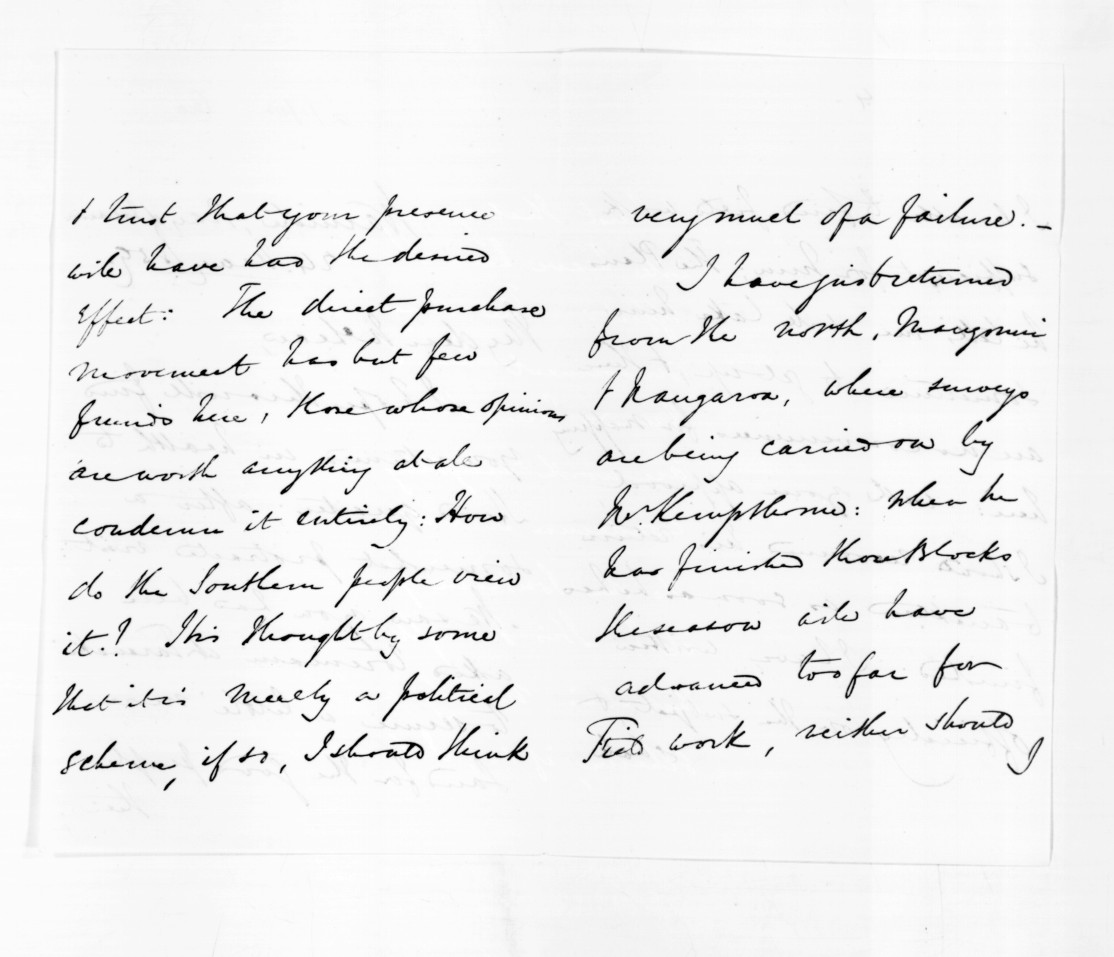 & trust that your presence
will have had the desired
effect: The direct purchase
movement has but few
friends here, those whose opinions
are worth anything at all
condemn it entirely: How
do the Southern people view
it?! It is thought by some
that it is merely a political
scheme, if so, I should think
very much of a failure. –
I have just returned
from the north, Mangonui
& Wangaroa, where surveys
are being carried on by
Mr. Kempthorne: when he
has finished those Blocks
the season will have
advanced too far for
Field work, neither should
I